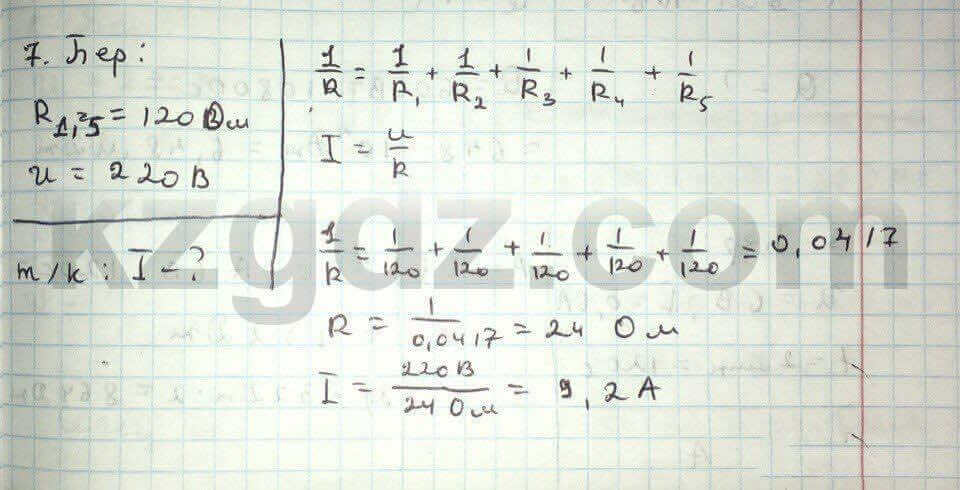 7. Бер:
R1,25 = 120 Ом
u = 220 В
m/k : I - ?
1/R = 1/R1 + 1/R2 + 1/R3 + 1/R4 + 1/R5
I = u/R
1/R = 1/120 + 1/120 + 1/120 + 1/120 + 1/120 = 0,0417
R = 1/0,0417 = 24 Ом
I = 220В/24 Ом = 9,2 А
kzgdz.com